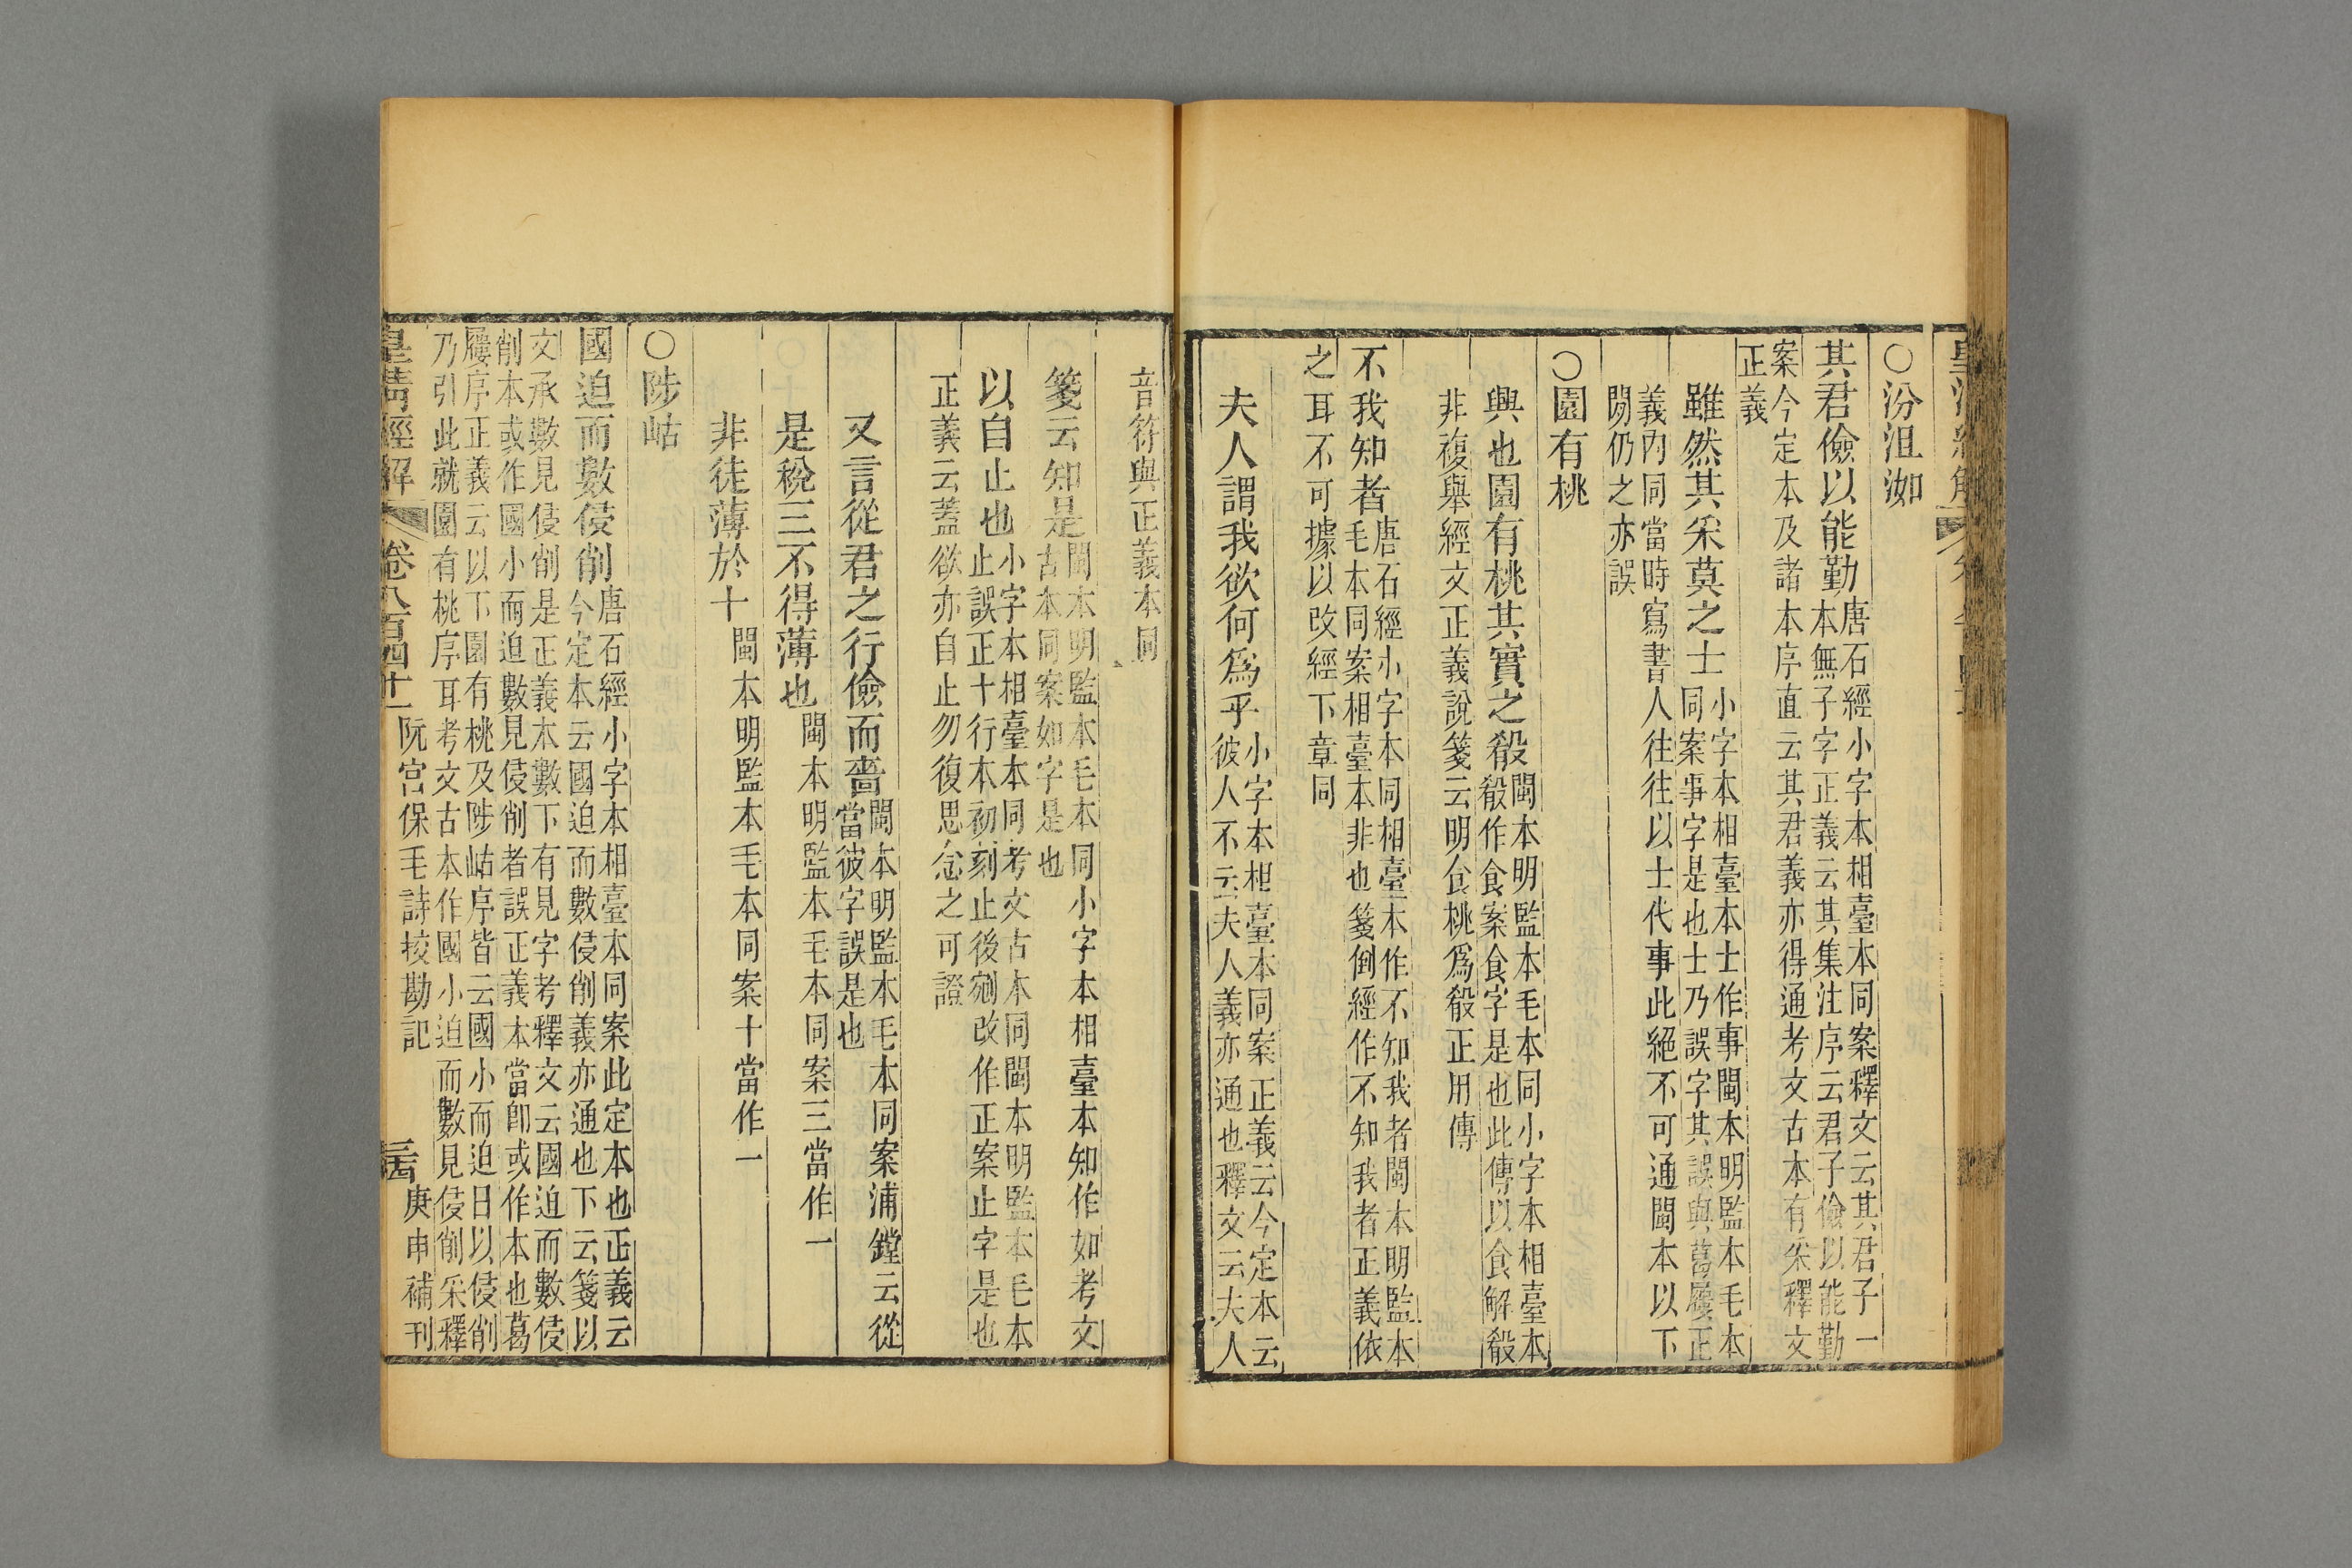 ○汾沮洳
其君儉以能勤唐石經小字本相臺本同案釋文云其君子一
本無子字正義云其集注序云君子儉以能勤
案今定本及諸本序直云其君義亦得通考文古本有采釋文
正義
雖然其采莫之士小字本相臺本士作事閩本明監本毛本
同案事字是也士乃誤字其誤與葛屨正
義內同當時寫書人往往以士代事此絕不可通閩本以下
閒仍之亦誤
○園有桃
興也園有桃其實之殽閩本明監本毛本同小字本相臺本
殽作食案食字是也此傳以食解殽
非複舉經文正義說箋云明食桃爲殽正用傳
不我知者唐石經小字本同相臺本作不知我者閩本明監本
毛本同案相臺本非也箋倒經作不知我者正義依
之耳不可據以改經下章同
夫人謂我欲何爲乎小字本相臺本同案正義云今定本云
彼人不云夫人義亦通也釋文云夫人
音符與正義本同
箋云知是閩本明監本毛本同小字本相臺本知作如考文
古本同案如字是也
以自止也小字本相臺本同考文古本同閩本明監本毛本
止誤正十行本初刻止後剜改作正案止字是也
正義云蓋欲亦自止勿復思念之可證
又言從君之行儉而嗇閩本明監本毛本同案浦鏜云從
當彼字誤是也
是稅三不得薄也閩本明監本毛本同案三當作一
非徒薄於十閩本明監本毛本同案十當作一
○陟岵
國迫而數侵削唐石經小字本相臺本同案此定本也正義云
今定本云國迫而數侵削義亦通也下云箋以
文承數見侵削是正義本數下有見字考釋文云國迫而數侵
削本或作國小而迫數見侵削者誤正義本當卽或作本也葛
屨序正義云以下園有桃及陟岵序皆云國小而迫日以侵削
乃引此就園有桃序耳考文古本作國小迫而數見侵削采釋
皇清經解 卷八百四十一 阮宮保毛詩挍勘記 庚申補刊